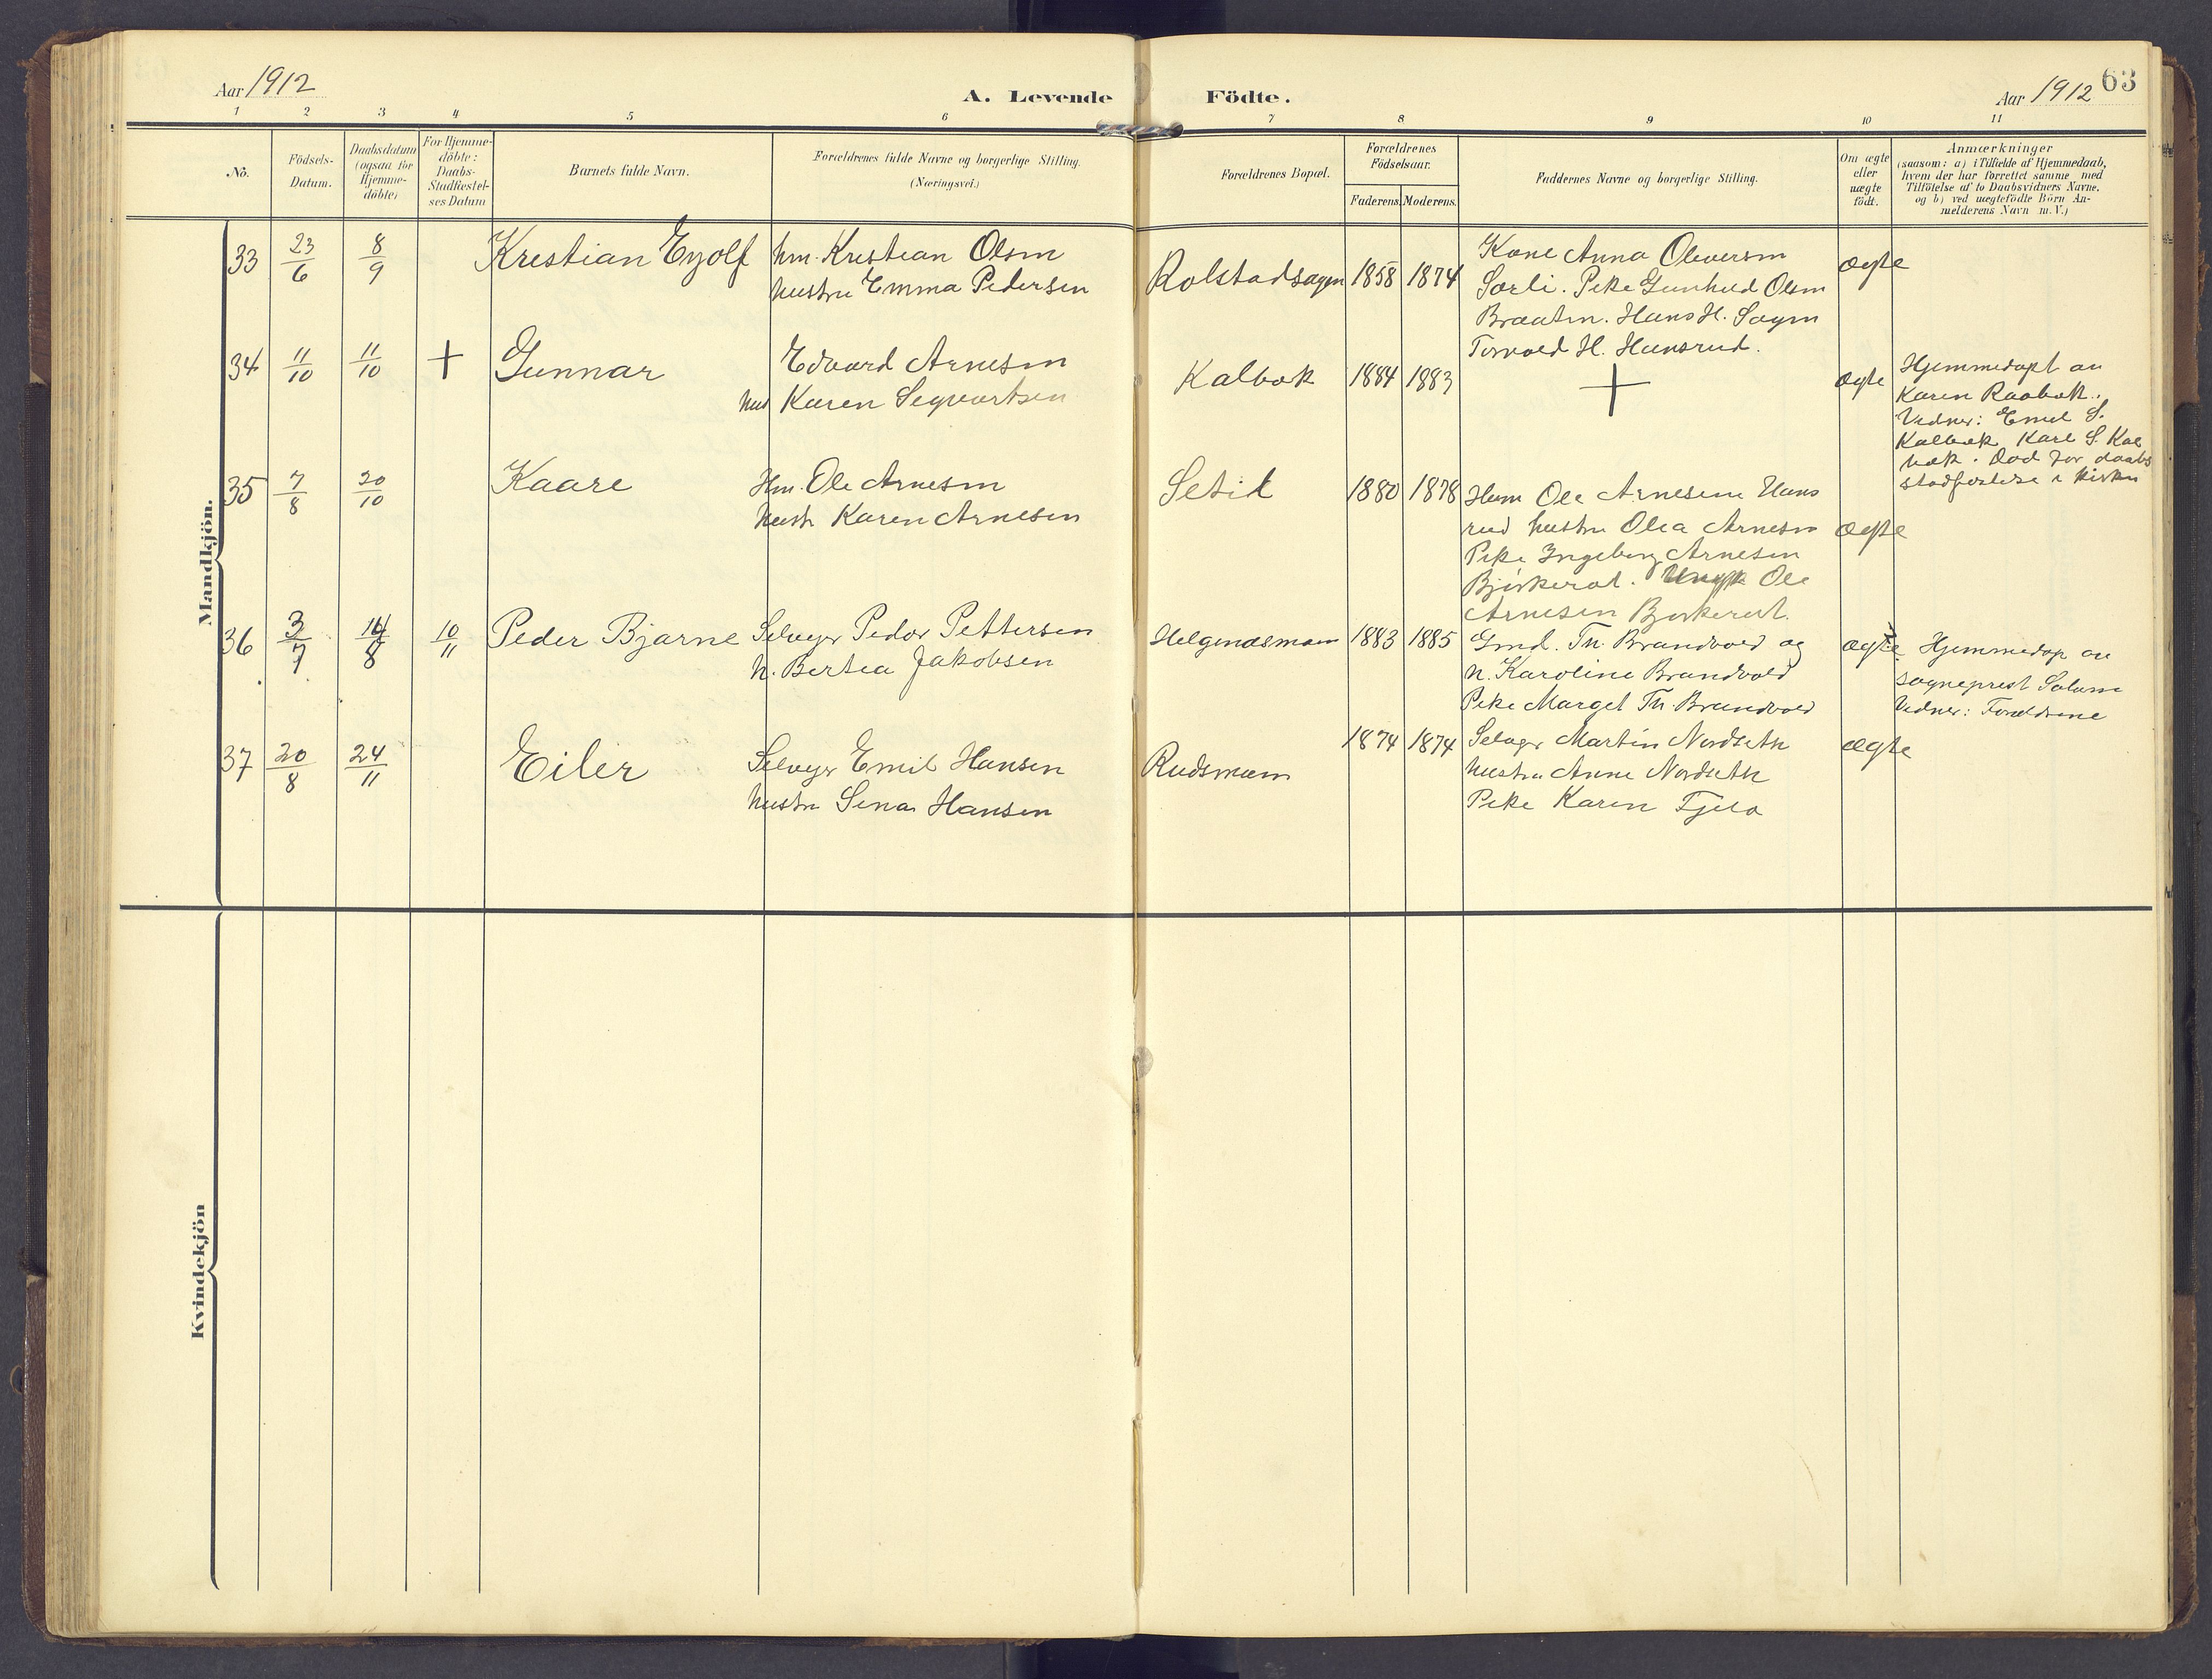 Aar 1912
A. Levende Födte.
Aar 1912 63
1 2 3 4 5 6 7 8 9 10 11
No.
Födsels-
Datum.
Daabsdatum
(ogsaa for
Hjemme-
döbte)
For Hjemme-
döbte:
Daabs-
Stadfæstel-
ses Datum
Barnets fulde Navn.
Forældrenes fulde Navne og borgerlige Stilling.
(Næringsvei.)
Forældrenes Bopæl.
Forældrenes
Födselsaar.
Faderens. Moderens.
Faddernes Navne og borgerlige Stilling.
Om ægte
eller
uægte
födt.
Anmærkninger
(saasom: a) i Tilfælde af Hjemmedaab,
hvem der har forrettet samme med
Tilföielse af to Daabsvidners Navne,
og b) ved uægtefödte Börn An-
melderens Navn m. V.)
Mandkjön.
33 23/6 8/9 Krestian Eyolf
hm. Krestian Olsen
hustru Emma Pedersen
Rolstadsagen 1858 1874
Kone Anna Oliversen
Sørli. Pike Gunhild Olsen
Braaten. Hans H. Sagen
Torvald H. Hansrud.
ægte
34 11/10 11/10 + Gunnar
Edvard Arnesen
hus Karen Segvartsen
Kalbæk 1884 1883
+
ægte
Hjemmedøpt av
Karen Raabæk.
Vidner: Emil S.
Kalbæk Karl S. Kal
bæk. Død før daabs
stadfestelse i kirken
35 7/8 20/10 Kaare
Hm. Ole Arnesen
hustr Karen Arnesen
Setil 1880 1878
Hum Ole Arnesen Hans
rud hustru Olea Arnesen
Pike Ingeborg Arnesen
Bjørkerat. Ole
Arnesen Bjørkerat.
ægte
36 3/7 14/8 10/11 Peder Bjarne
Selveyr Peder Pettersen
h. Bertea Jakobsen
Helgenæsmoen 1883 1885
Grmd. Th. Brandvold og
h. Karoline Brandvold
Pike Marget Th. Brandvold
ægte
Hjemmedøp av
sogneprest Solum
Vidner: Forældrene
37 20/8 24/11 Eiler
Selveyr Emil Hansen
hustru Sina Hansen
Rudsmoen 1874 1874
Selveyr Martin Nordseth
hustru Anne Nordseth
Pike Karen Fjeld
ægte
Kvindekjön